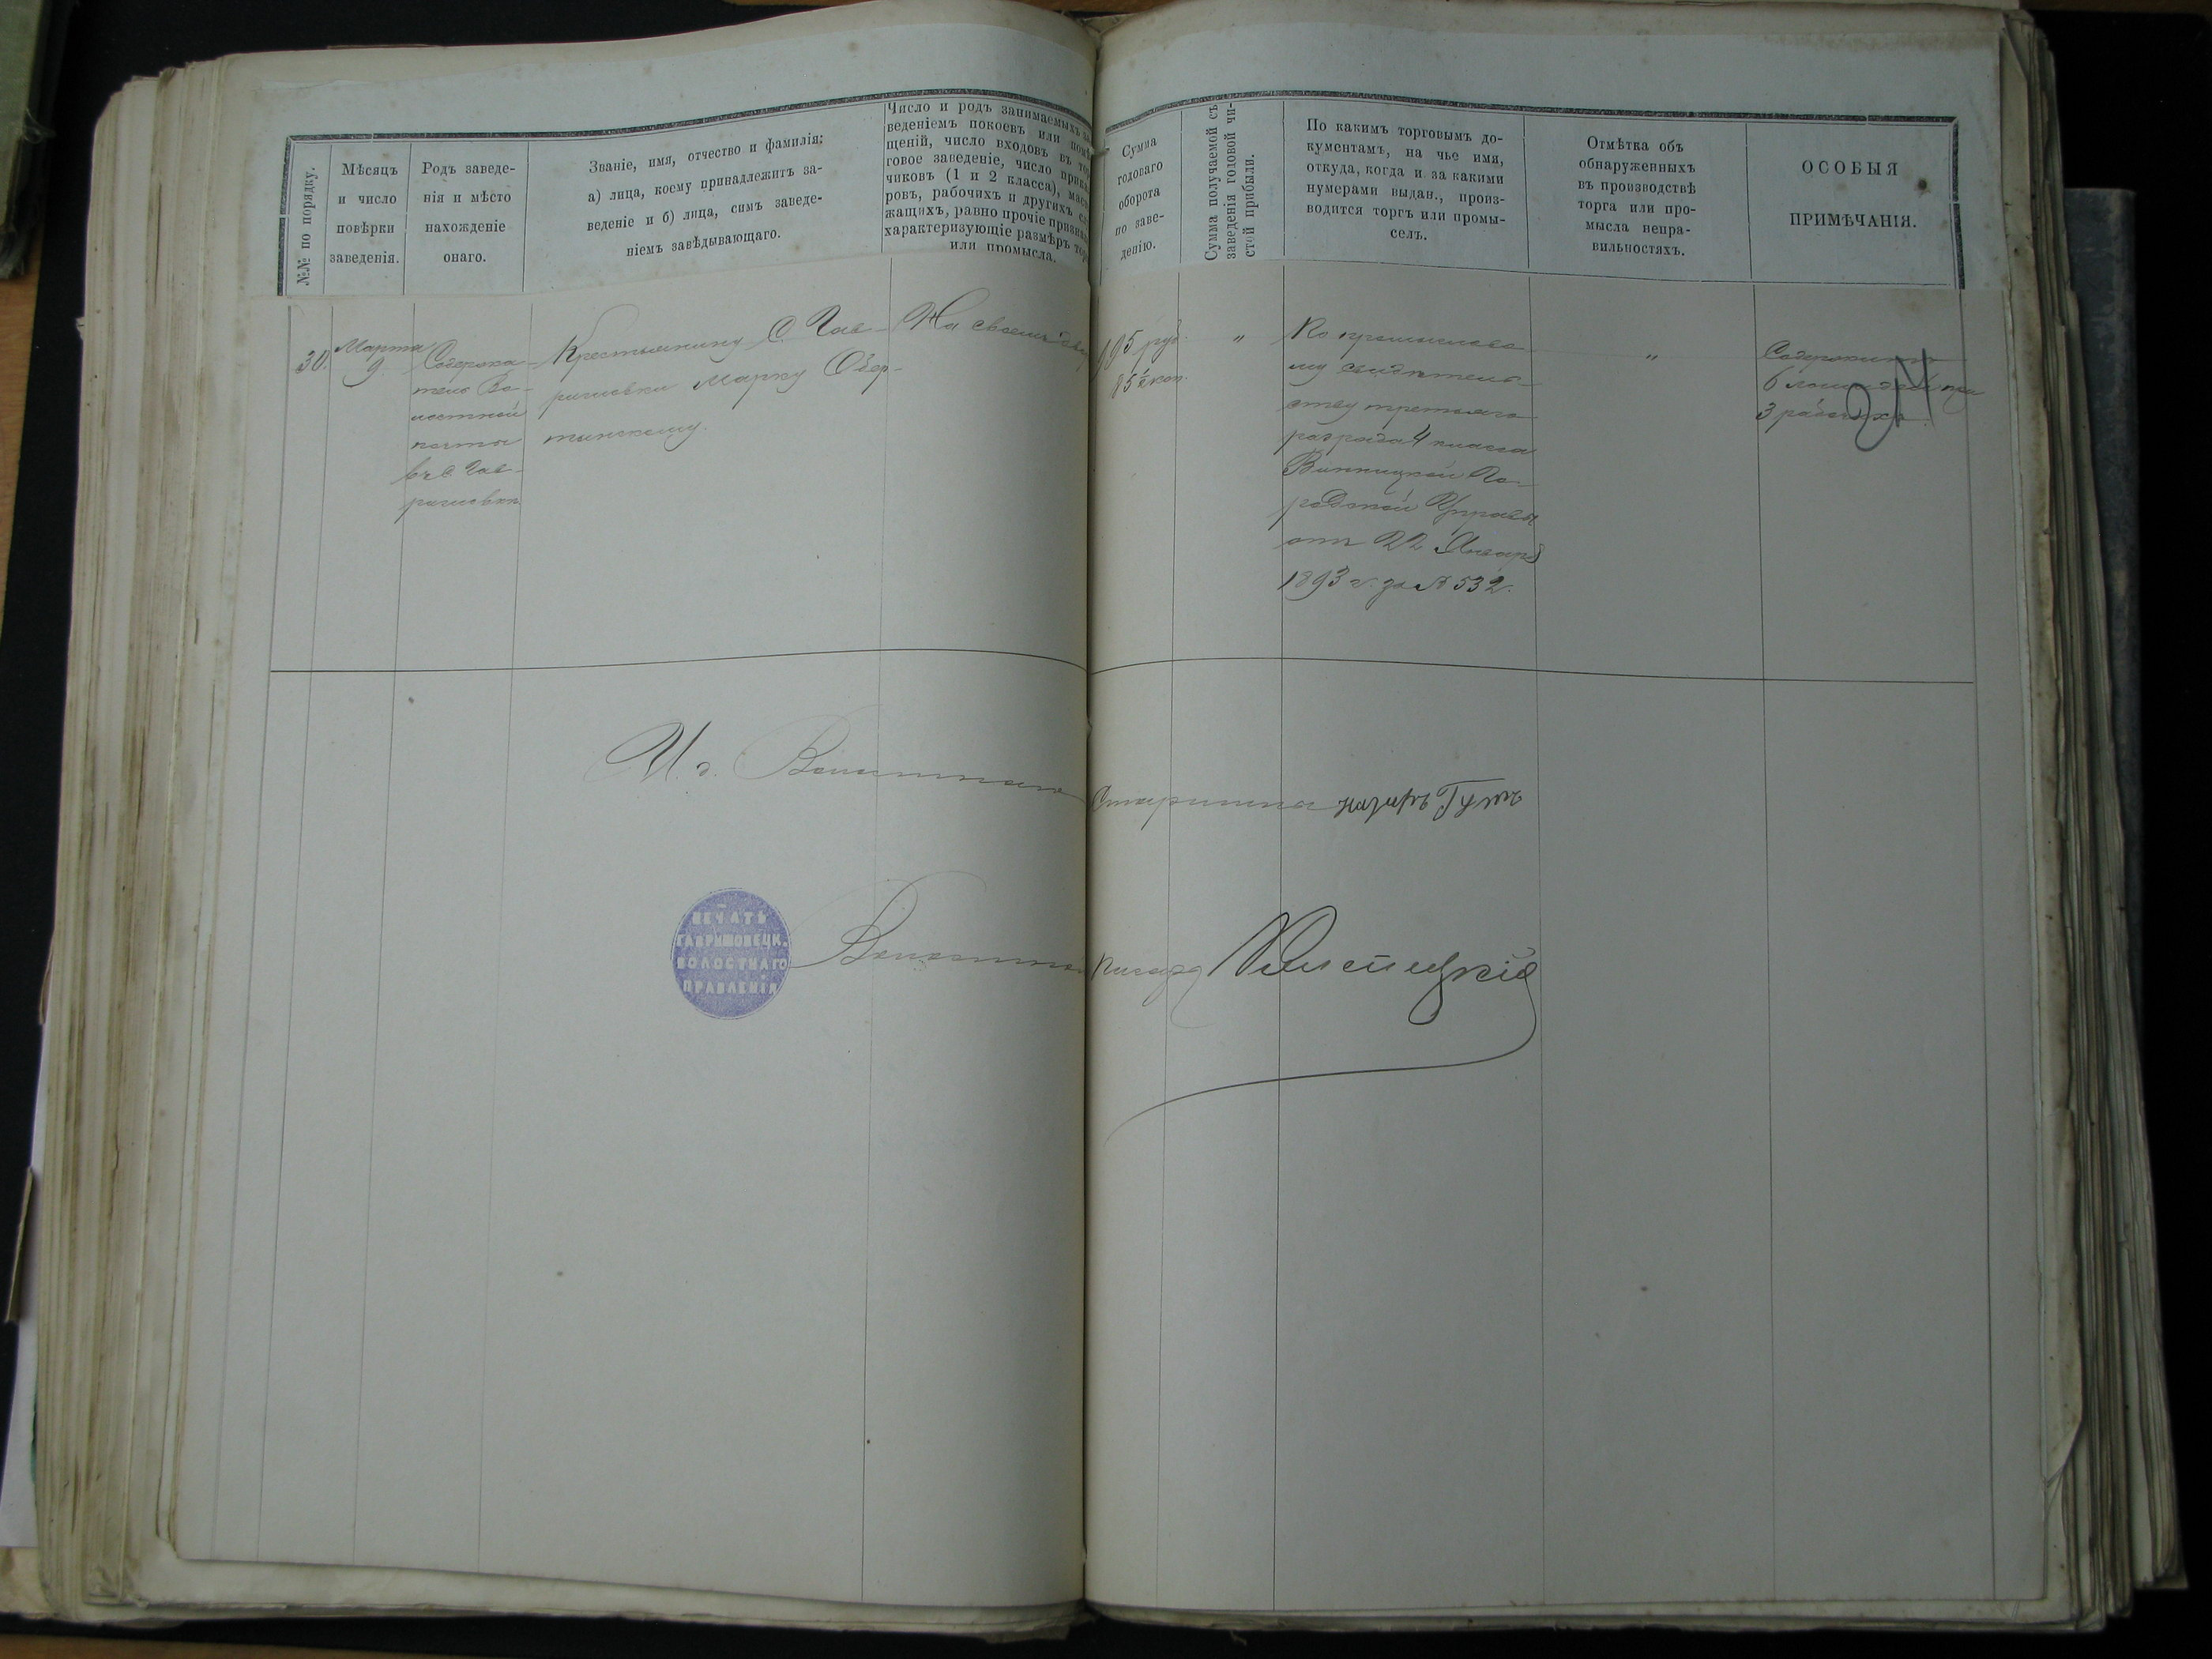 №№ по порядку.
Мѣсяцъ
и число
повѣрки
заведенія.
Родъ заведе-
нія и мѣсто
нахожденіе
онаго.
Званіе, имя, отчество и фамилія:
а) лица, коему принадлежитъ за-
веденіе и б) лица, симъ заведе-
ніемъ завѣдывающаго.
Число и родъ занимаемыхъ
веденіемъ покоевъ или
щеній, число входовъ въ
говое заведеніе, число
чиковъ (1 и 2 класса),
ровъ, рабочихъ и другихъ
жащихъ, равно прочіе
характеризующіе размѣръ
или промысла.
Сумма
годоваго
оборота
по заве-
денію.
Сумма получаемой съ
заведенія годовой чи-
стой прибыли.
По какимъ торговымъ до-
кументамъ, на чье имя,
откуда, когда и за какими
нумерами выдан., произ-
водится торгъ или промы-
селъ.
Отмѣтка объ
обнаруженныхъ
въ производствѣ
торга или про-
мысла непра-
вильностяхъ.
ОСОБЫЯ
ПРИМѢЧАНІЯ.
30.
Марта
9
Содержа-
тель Во-
лостной
почты
въ с. Гав-
ришовкѣ
Крестьянину С. Гав-
ришовки Марку Обер-
тинскому.
На своемъ
195 руб.
85½ коп.
"
По промыслово-
му свидѣтель-
ству третьяго
разряда 4 класса
Винницкой Го-
родской Управы
отъ 22 Января
1893 г. за № 532.
"
Содержитъ
6 лошадей при
3 рабочихъ
И. д. Волостнаго Старшины Назаръ
ПЕЧАТЬ
ГАВРИШОВЕЦК.
ВОЛОСТНАГО
ПРАВЛЕНІЯ
Волостной Писарь